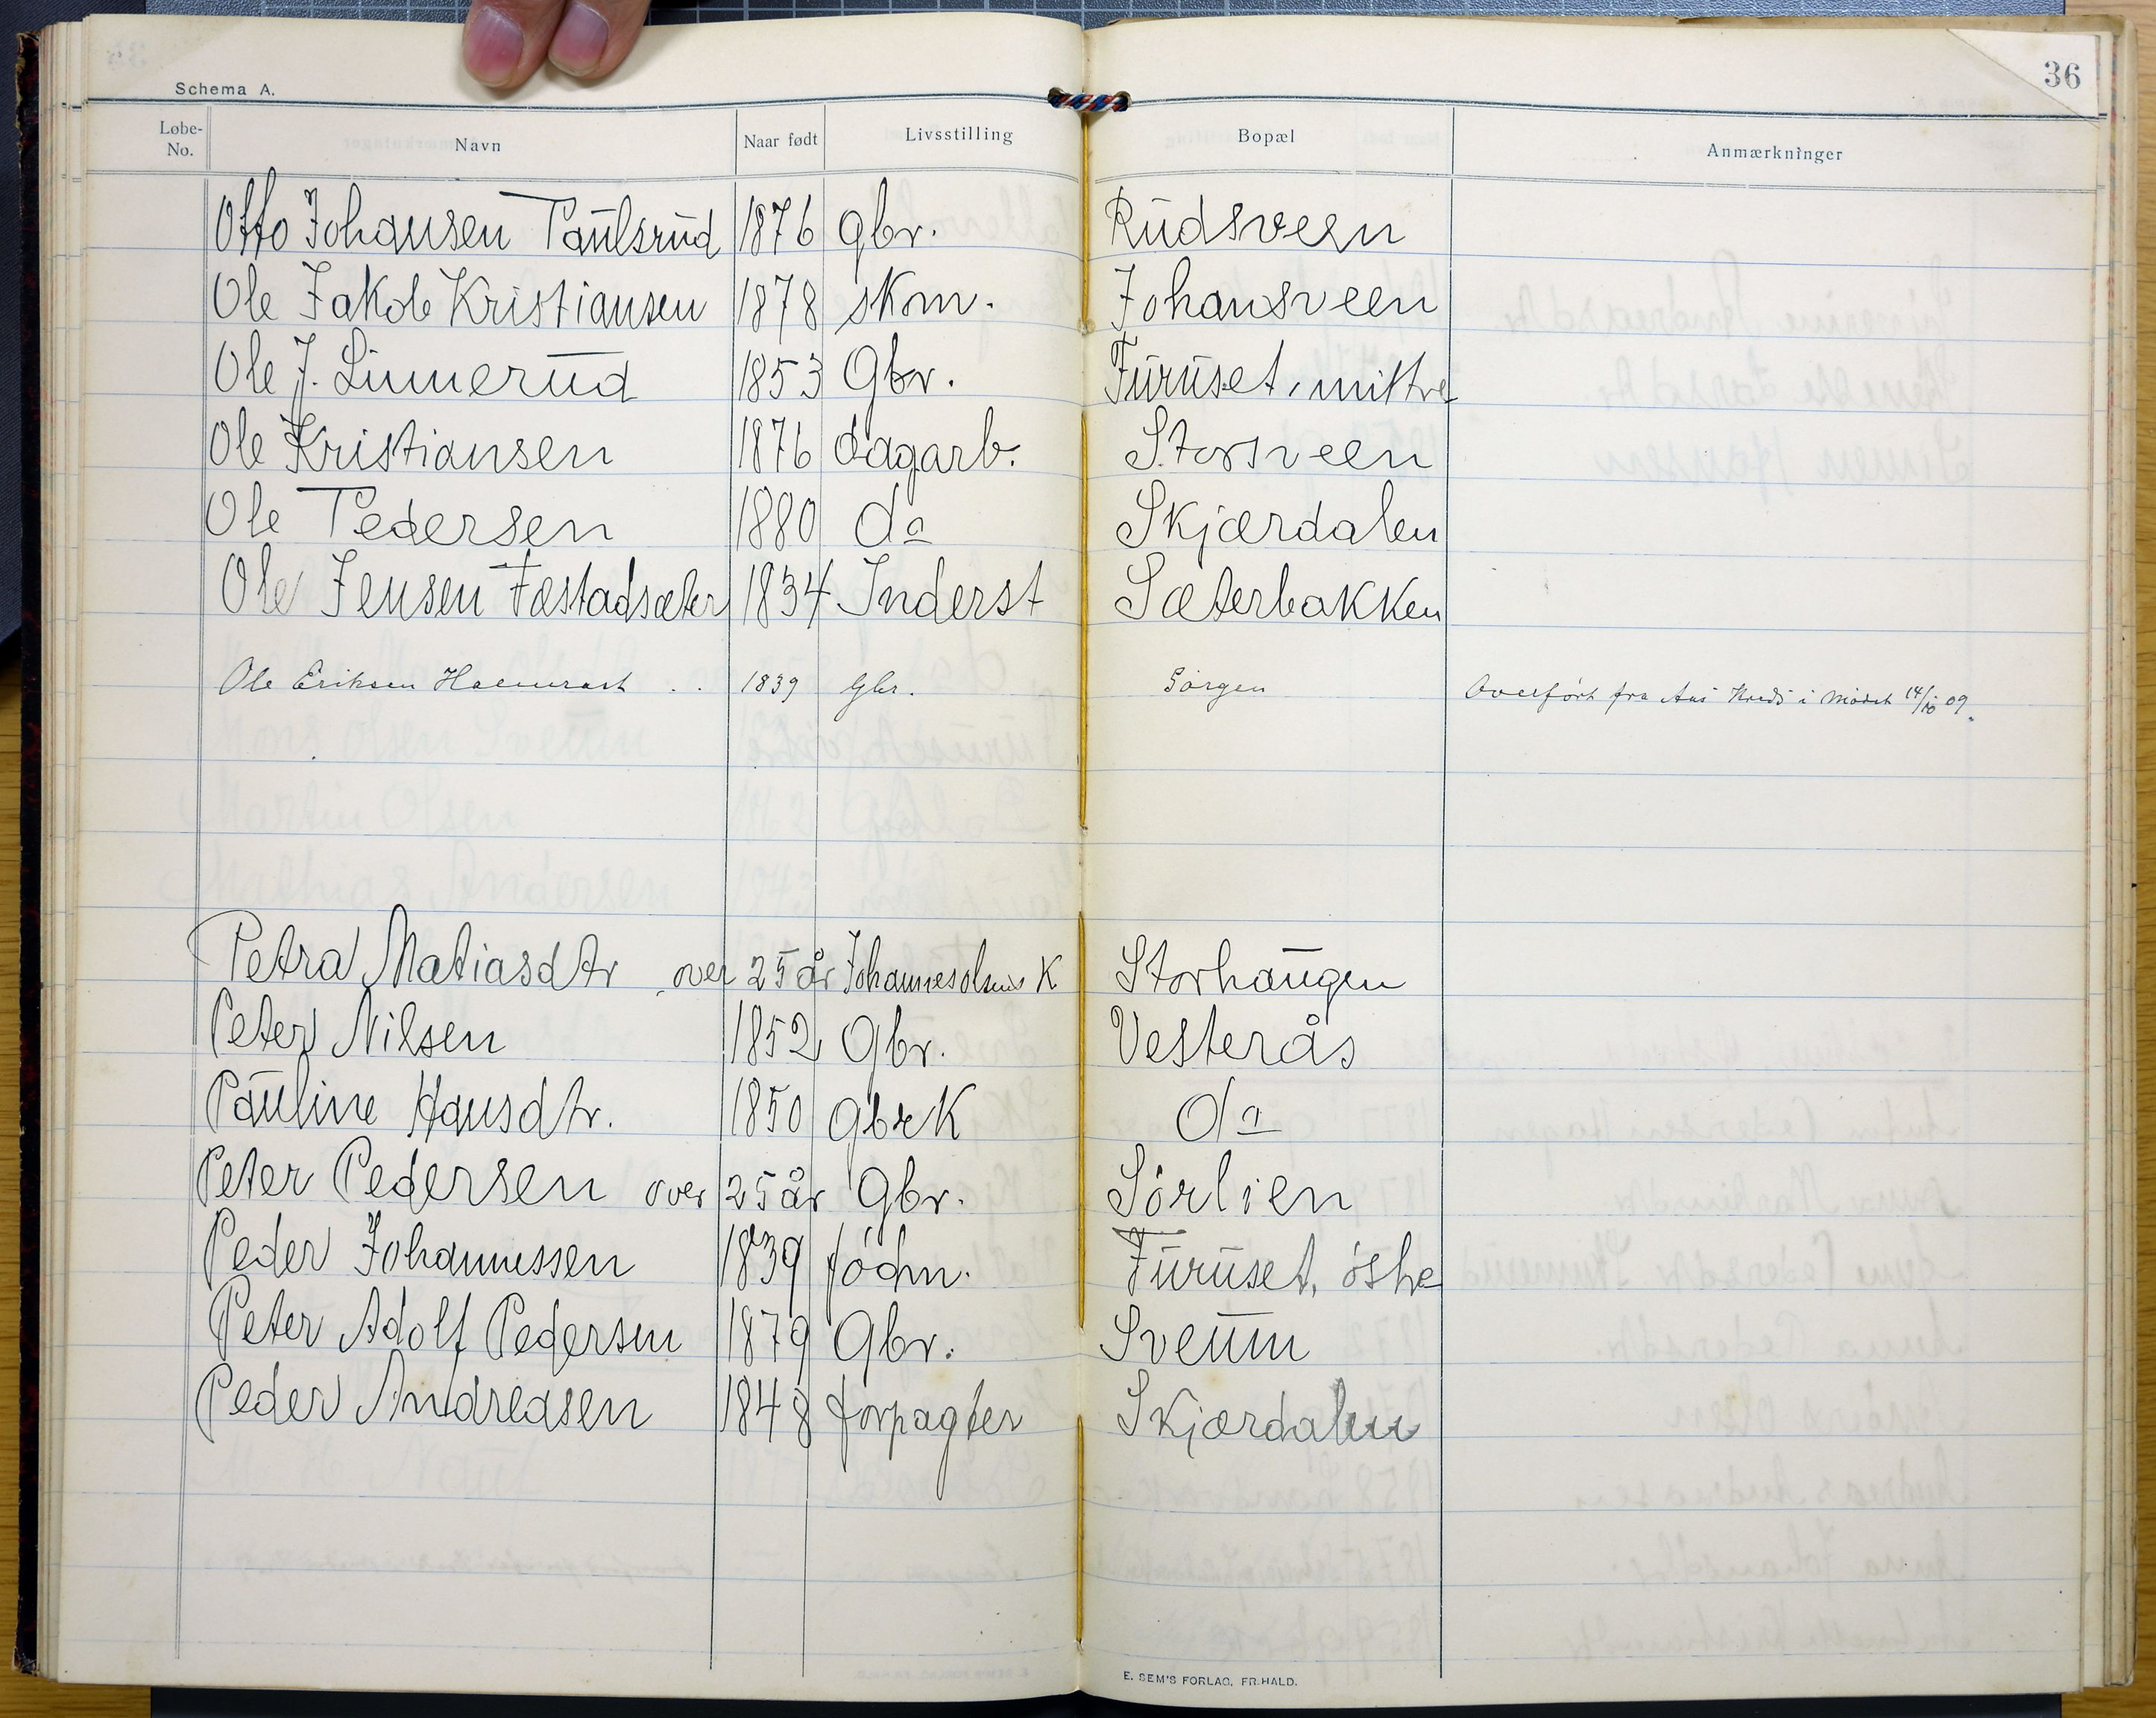 36
Schema A.
Løbe-No. Navn Naar født Livsstilling Bopæl Anmærkninger
Otto Johansen Paulsrud 1876 gbr. Rudsveen
Ole Jakob Kristiansen 1878 skom. Johansveen
Ole J. Linnerud 1853 Gbr. Furuset, mittre
Ole Kristiansen 1876 dagarb. Storsveen
Ole Pedersen 1880 do Skjærdalen
Ole Jensen Fæstadsæter 1834 Inderst Sæterbakken
Ole Eriksen 1839 Gbr. Sørgen Overført fra i Mødet 14/10 09.
Petra Matiasdtr over 25 år Johannes olsens K Storhaugen
Peter Nilsen 1852 Gbr. Vesterås
Pauline Hansdtr. 1850 GbrK do
Peter Pedersen over 25 år Gbr. Sörlien
Peder Johannessen 1839 födm. Furuset, östre
Peter Adolf Pedersen 1879 Gbr. Sveum
Peder Andreasen 1848 forpagter Skjærdalen
E. SEM'S FORLAG, FR.HALD.